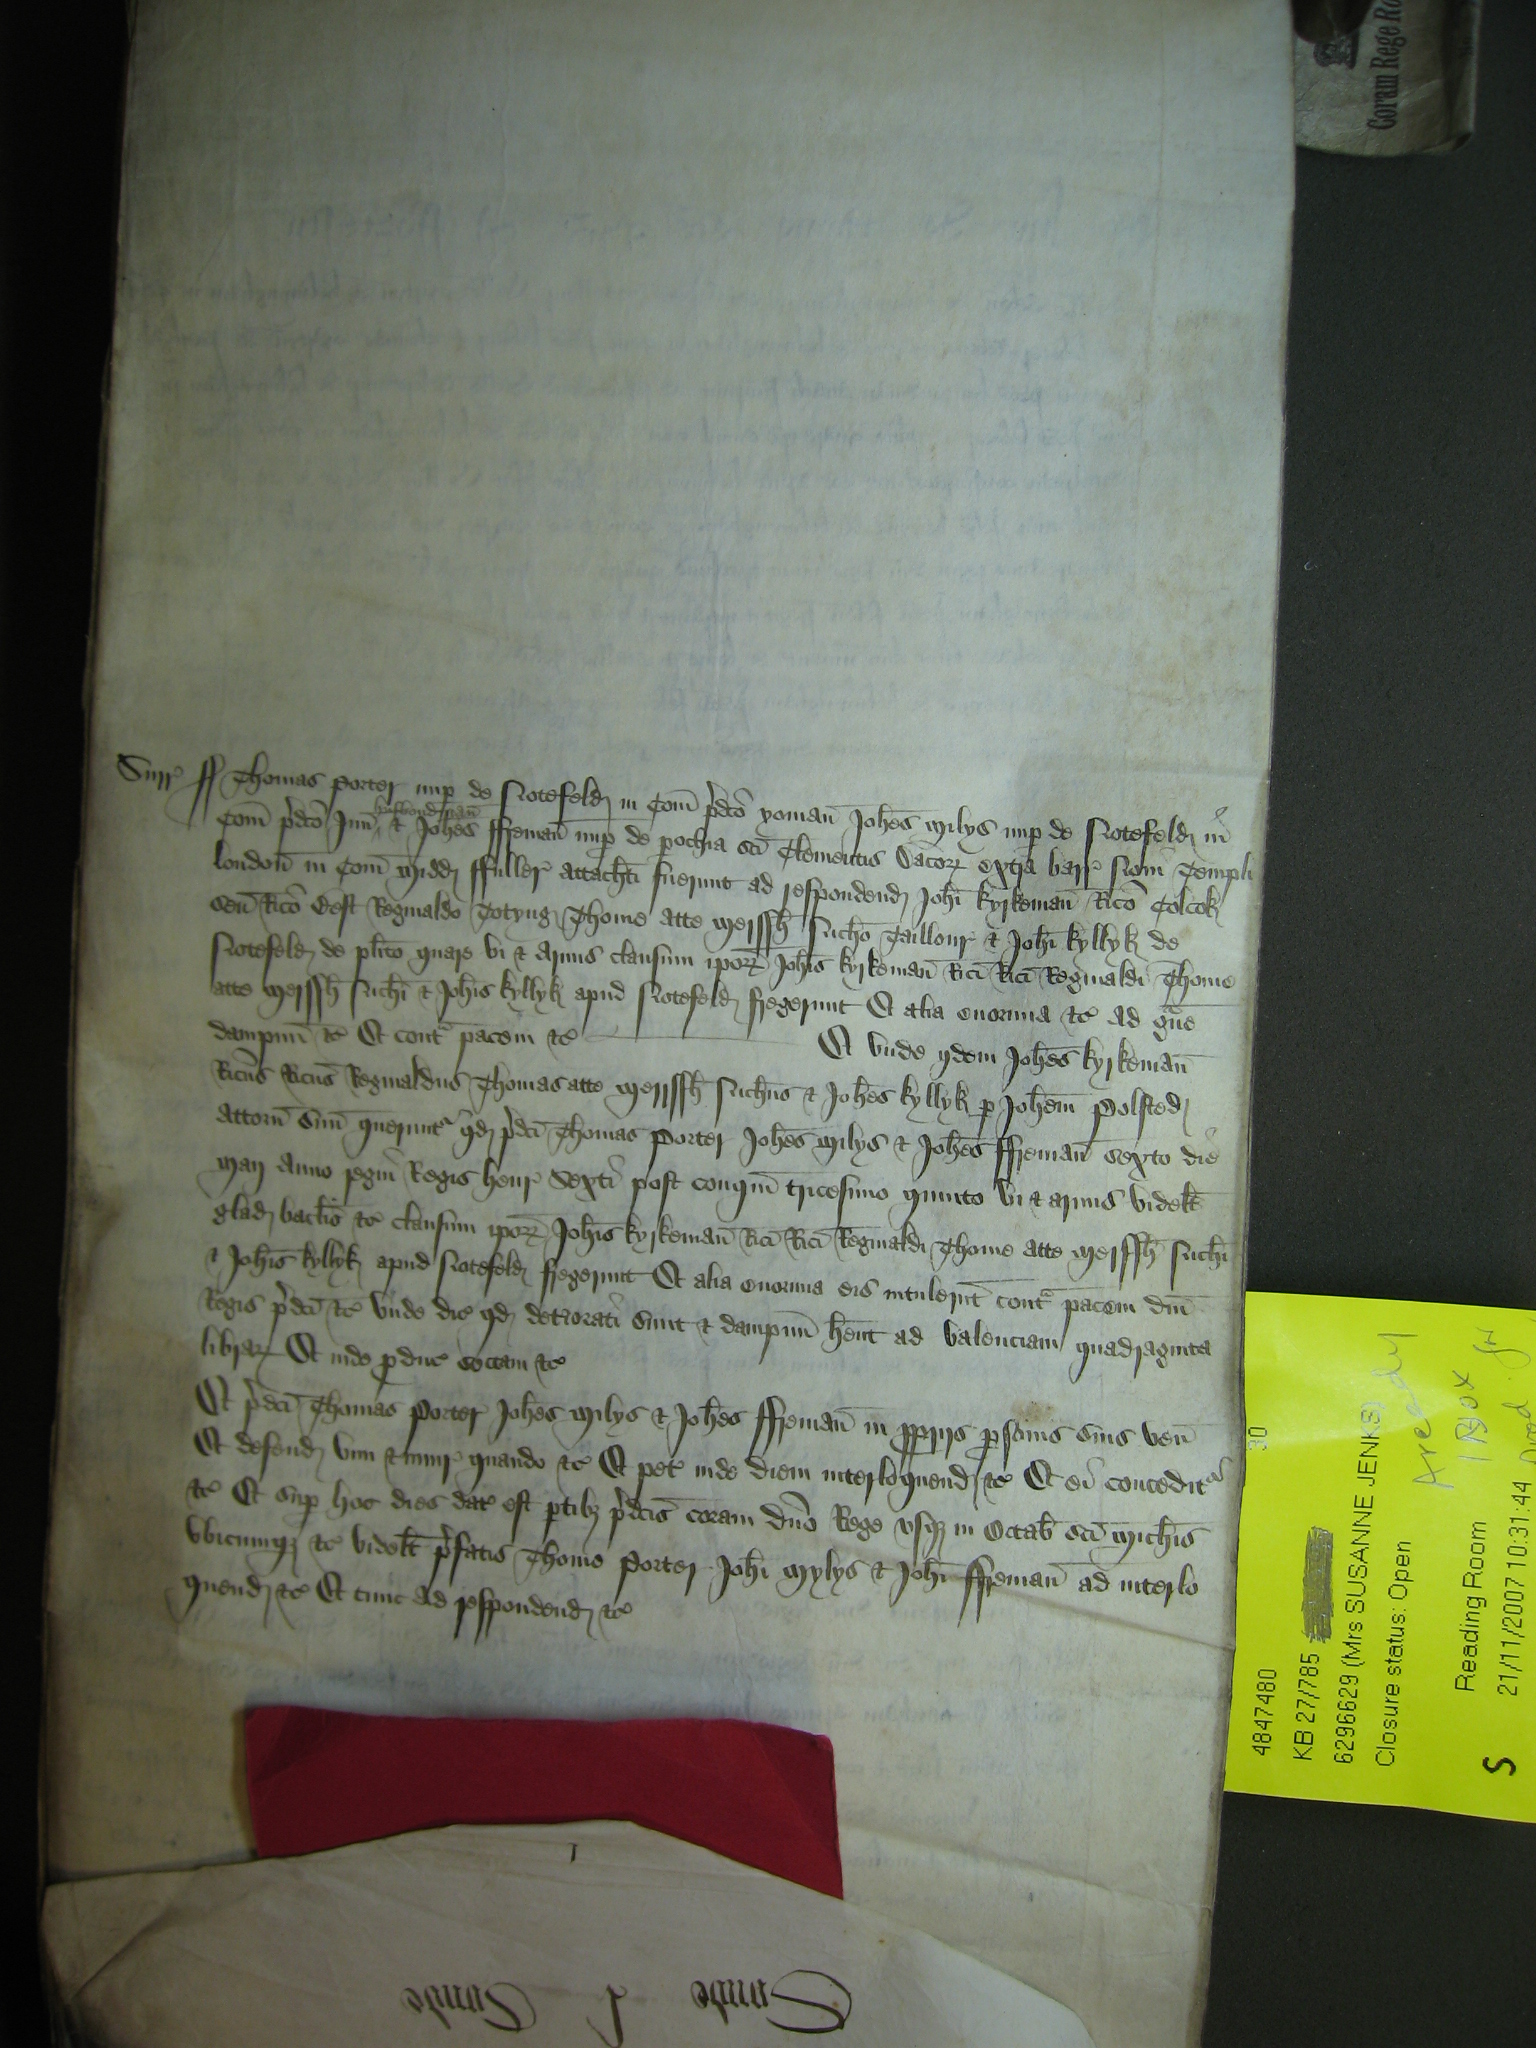 Coram Rege Ro
Surr ff Thomas Porter nup de Notefeld in Com p̄dc̄o yoman Joh̄es Milys nup de Notefeld in
Com p̄dc̄o Jun̄ husbondman & Joh̄es ffreman̄ nup de pochia sc̄i Clementis Dacoȝ extra barr̄ Novi Templi
london̄ in Com̄ Midd ffuller attach̄i fuerunt ad respondend Joh̄i kyrkeman̄ Ric̄o Colcok
sen̄ Ric̄o West Reginaldo Totyng Thome atte Merssh̄ Nich̄o Taillour & Joh̄i kyllyk de
Notefeld de pl̄ito quare vi & armis clausum ipoȝ Joh̄is kyrkeman̄ Ric̄i Ric̄i Reginaldi Thome
atte Merssh̄ Nich̄i & Joh̄is kyllyk apud Notefeld fregerunt Et alia enormia &c ad g̃ue
dampnū &c Et cont̃ pacem &c Et unde ijdem Joh̄es kyrkeman̄
Ric̄us Ric̄us Reginaldus Thomas atte Merssh̄ Nich̄us & Joh̄es kyllyk p Joh̄em Polsted
attorn̄ suū querunt̃ qd p̄dc̄i Thomas Porter Joh̄es Milys & Joh̄es ffreman̄ sexto die
Maij Anno regni Regis henr̄ Sexti post conqm̄ tricesimo quinto vi & armis videlt̄
glad bacl̄is &c clausum ipoȝ Joh̄is kyrkeman̄ Ric̄i Ric̄i Reginaldi Thome atte Merssh̄ Nich̄i
& Joh̄is kyllyk apud Notefeld fregerunt Et alia enormia eis intulerūt cont̃ pacem dn̄i
Regis p̄dc̄i &c unde dic̄ qd detiorati sunt & dampnū hēnt ad valenciam quadraginta
libraȝ Et inde pduc̄ sectam &c
Et p̄dc̄i Thomas Porter Joh̄es Milys & Joh̄es ffreman̄ in pprijs psonis suis ven̄
Et defend vim & iniur̄ quando &c Et pet̄ inde diem interloquend &c Et eis concedit̃
&c Et sup hoc dies dat̄ est ptibȝ p̄dc̄is coram dn̄o Rege usqȝ in Octab̄ sc̄i Mich̄is
Ubicumqȝ &c videlt̄ p̄fatis Thome Porter Joh̄i Mylys & Joh̄i ffreman̄ ad interlo
quend &c Et tunc ad respondend &c
30
4847480
KB 27/785
6296629 (Mrs SUSANNE JENKS)
Closure status: Open
Already
1 Box
Reading Room
21/11/2007 10:31:44
S